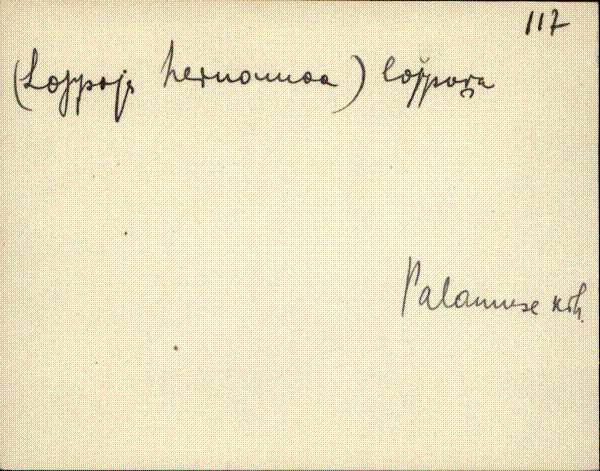 117
(Loppoja hernomaa) loppoja
Palamuse khk.